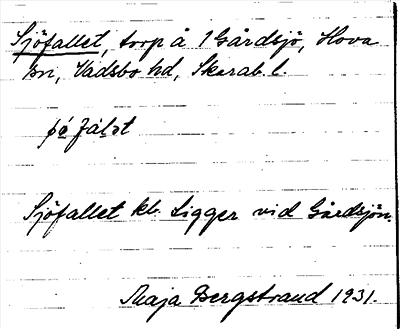 Sjöfallet, torp å 1 Gårdsjö, Hova
sn, Vadsbo hd, Skarab. l.
på fálət
Sjöfallet kb. Ligger vid Gårdsjön.
Maja Bergstrand 1931.